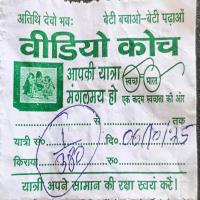 अतिथि देवो भवः बेटी बचाओ-बेटी पढ़ाओं
वीडियो कोच
आपकी यात्रा
मंगलमय हो
स्वच्छ भारत
एक कदम स्वच्छता की ओर
से तक
यात्री सं० 1 दि० 06/10/25
किराया 380 रु०
यात्री अपने सामान की रक्षा स्वयं करें।